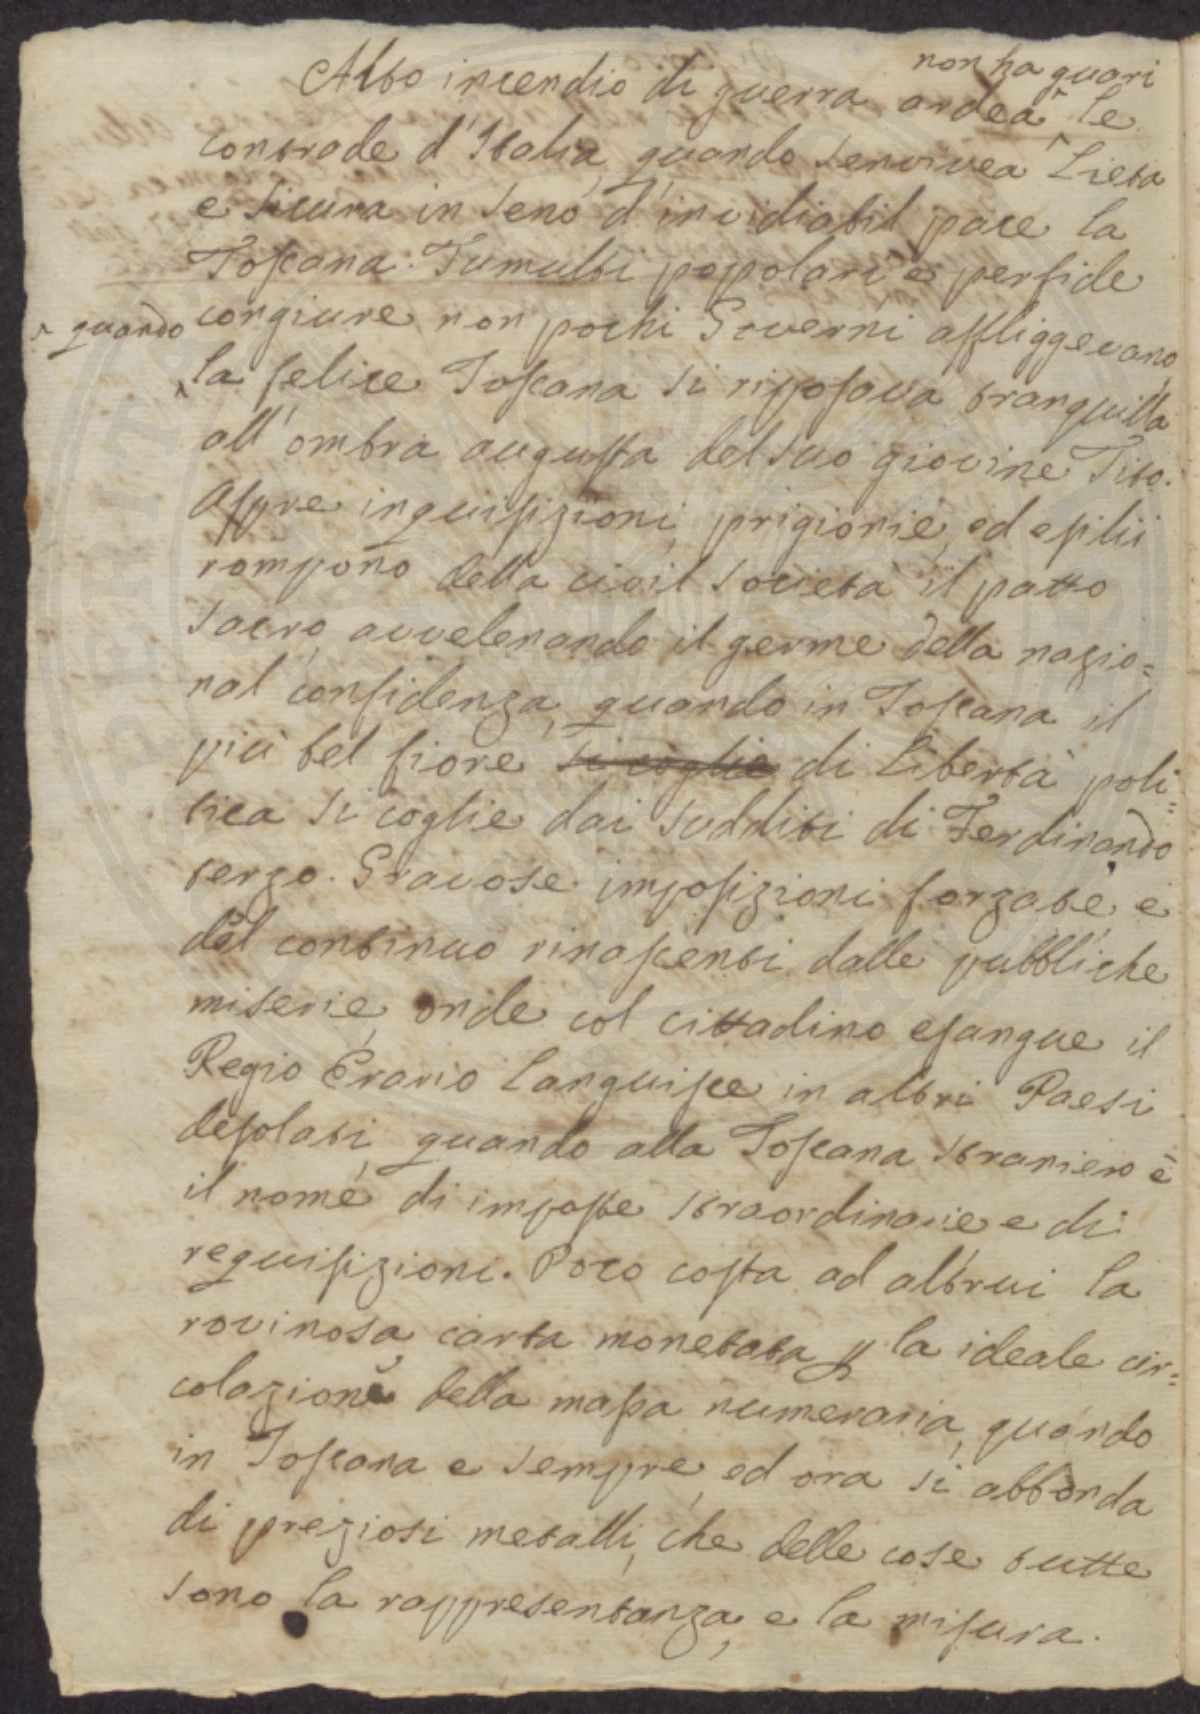 Alto incendio di guerra ardea ^ non ha guari le
contrade d'Italia, quando sen vivea Lieta
e sicura in seno d'invidiabil pace la
Toscana. Tumulti popolari e perfide
congiure non pochi Governi affliggevano,
^ quando la felice Toscana si riposava tranquilla
all'ombra augusta del suo giovine Tito.
Aspre inquisizioni, prigionie, ed esilii
rompono della civil società il patto
sacro, avvelenando il germe della nazio=
nal confidenza, quando in Toscana il
più bel fiore si coglie di Libertà poli=
tica si coglie dai sudditi di Ferdinando
terzo. Gravose imposizioni forzate, e
del continuo rinascenti dalle pubbliche
miserie, onde col cittadino esangue il
Regio Erario Languisce in altri Paesi
desolati, quando alla Toscana straniero è
il nome di imposte straordinarie e di
requisizioni. Poco costa ad altrui la
rovinosa carta monetata la ideale cir=
colazione della massa numeraria, quando
in Toscana e sempre, ed ora si abbonda
di preziosi metalli, che delle cose tutte
sono la rappresentanza, e la misura.